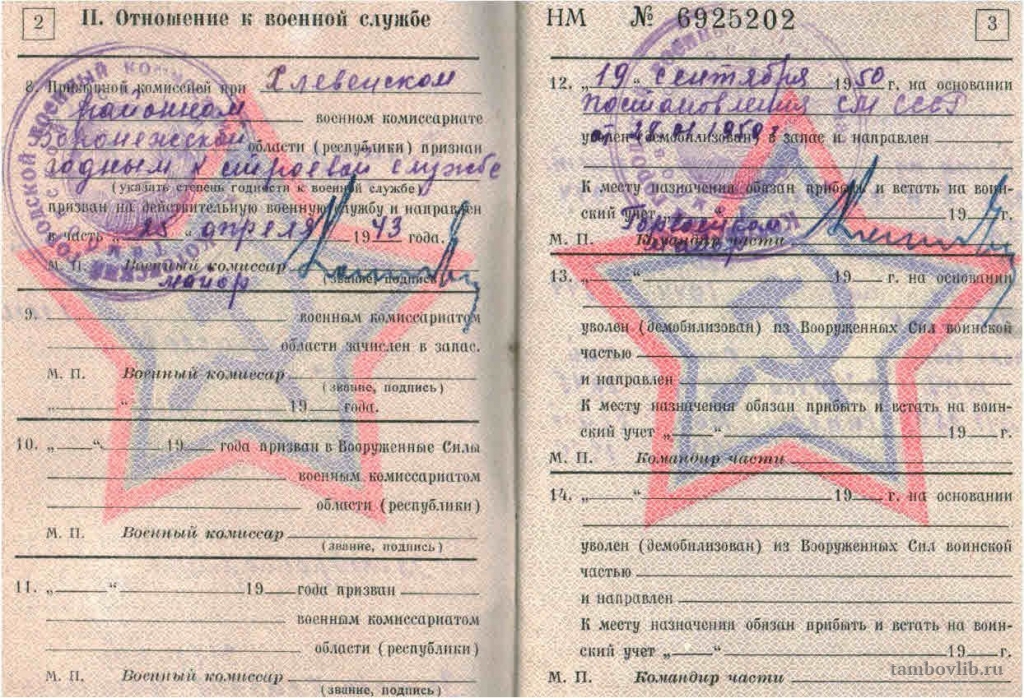 2
II. Отношение к военной службе
8. Призывной комиссией при Хлевенском
районном военном комиссариате
Воронежской области (республики) признан
годным к строевой службе
(указать степень годности к военной службе)
призван на действительную военную службу и направлен
в часть „25“ апреля 1943 года.
М. П. Военный комиссар
майор (звание, подпись)
9. военным комиссариатом
области зачислен в запас.
М. П. Военный комиссар
(звание, подпись)
„ “ 19 года.
10. „ “ 19 года призван в Вооруженные Силы
военным комиссариатом
области (республики)
М. П. Военный комиссар
(звание, подпись)
11. „ “ 19 года призван
военным комиссариатом
области (республики)
М. П. Военный комиссар
(звание, подпись)
НМ № 6925202
3
12. „19“ сентября 1950 г. на основании
Постановления СМ СССР
от
уволен (демобилизован) в запас и направлен
К месту назначения обязан прибыть и встать на воин-
ский учет „ 19 г.
М. П. Командир части
13. „ “ 19 г. на основании
уволен (демобилизован) из Вооруженных Сил воинской
частью
и направлен
К месту назначения обязан прибыть и встать на воин-
ский учет „ “ 19 г.
М. П. Командир части
14. „ “ 19 г. на основании
уволен (демобилизован) из Вооруженных Сил воинской
частью
и направлен
К месту назначения обязан прибыть и встать на воин-
ский учет „ “ 19 г.
М. П. Командир части
tambovlib.ru